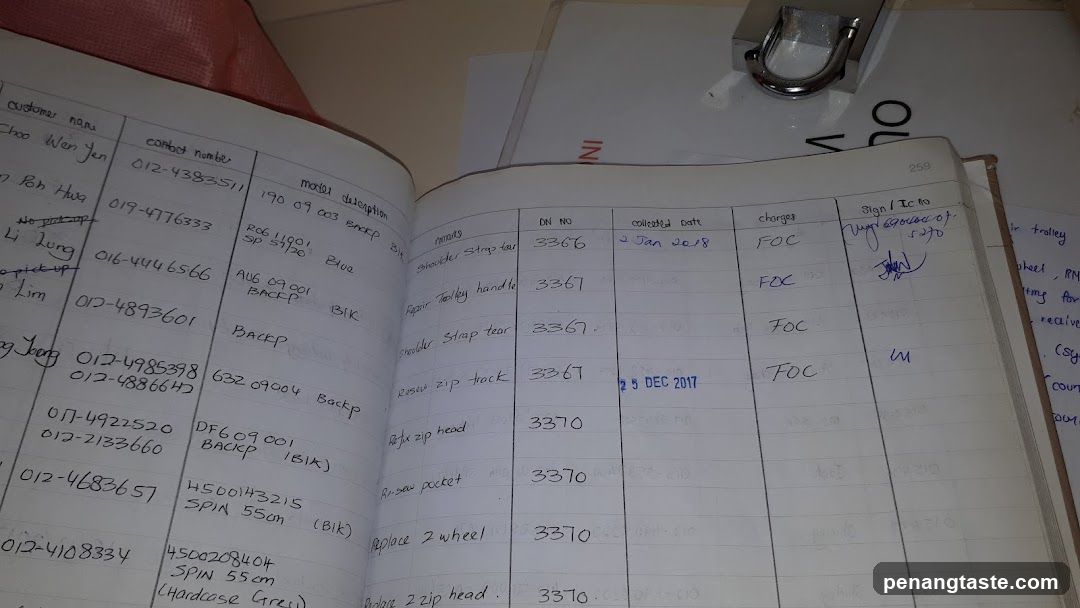 customer name
contact number
model description
Choo Wen Yen
012-4383511
190 09 003 BACKP Blk
Poh Hwa
019-4776333
R06 11901
SP 57/20 Blue
No pick-up
Li Lung
016-4446566
AU6 09001
BACKP BIK
pick-up
Lim
012-4893601
BACKP
012-4985398
012-4886642
632 09004 Backp
017-4922520
012-2133660
DF6 09 001
BACKP (BIK)
012-4683657
4500143215
SPIN 55cm (BIK)
012-4108334
4500208404
SPIN 55cm
(Hardcase Grey)
259
remarks
DN NO
collected Date
charges
Sign / Ic no
Shoulder Strap tear
3366
2 Jan 2018
FOC
5270
Repair Trolley handle
3367
FOC
Shoulder Strap tear
3367.
FOC
Resew zip track
3367
25 DEC 2017
FOC
Refix zip head
3370
Re-sew pocket
3370
Replace 2 wheel
3370
Replace 2 zip head.
3370.
INO
no
trolley
wheel, RM
for
receive
penangtaste.com